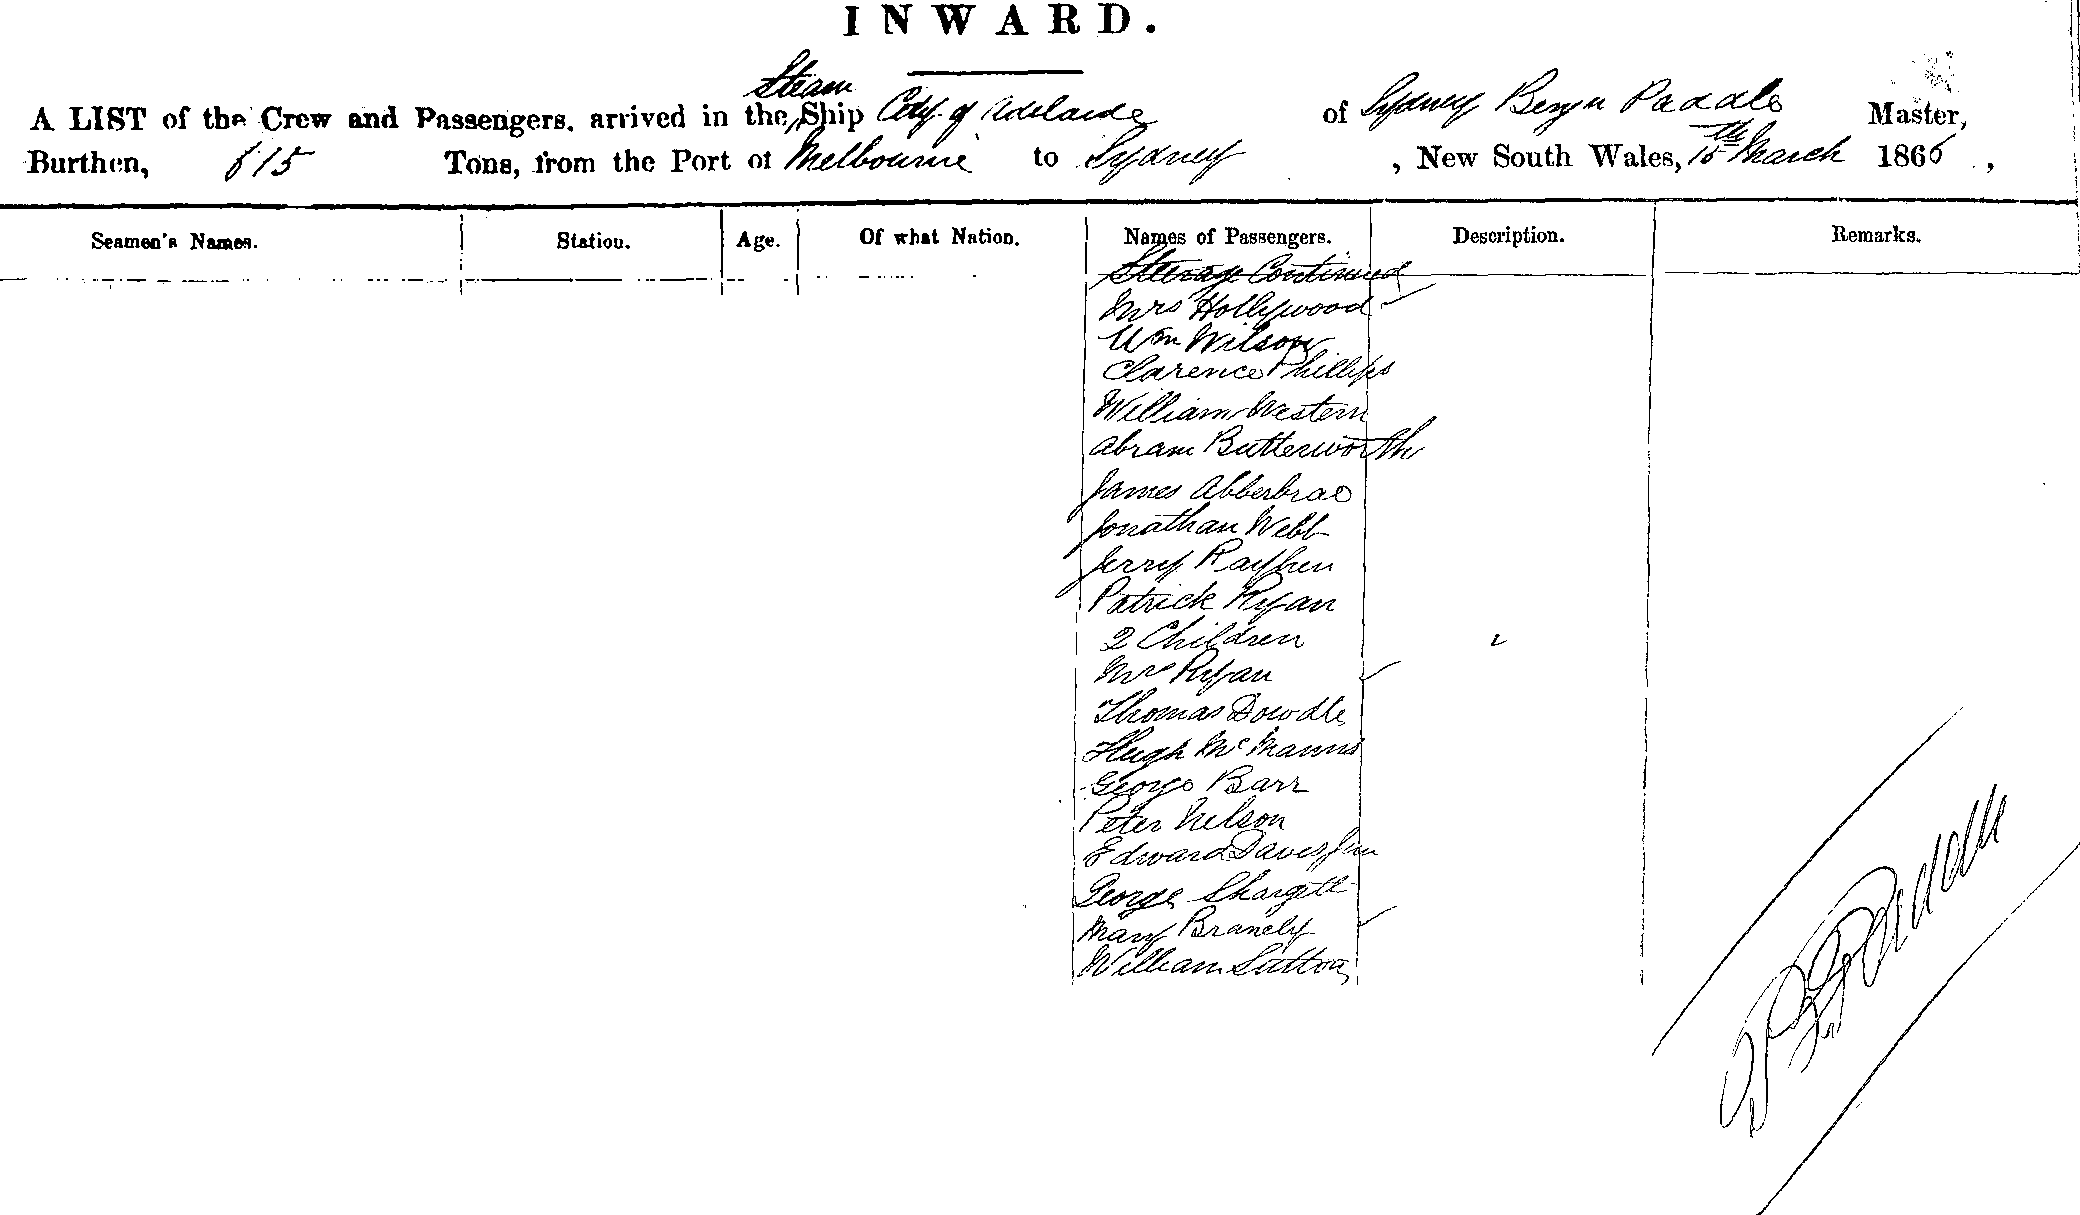 INWARD.
Steam
A LIST of the Crew and Passengers, arrived in the Ship City of Adelaide of Sydney Benjn Paddle Master,
Burthen, 615 Tons, from the Port of Melbourne to Sydney, New South Wales, 15th March 1866,
Seamen's Names. Station. Age. Of what Nation. Names of Passengers. Description. Remarks.
Steerage Continued
Mrs Hollywood
Wm Wilson
Clarence Phillips
William Western
Abram Butterworth
James Abberbrao
Jonathan Webb
Jerry
Patrick Ryan
2 Children
Mrs Ryan
Thomas Dowdle
Hugh McManns
George Barr
Peter Nelson
Edward Davis Jun
George Shargett
Mary Brancly
William Sutton